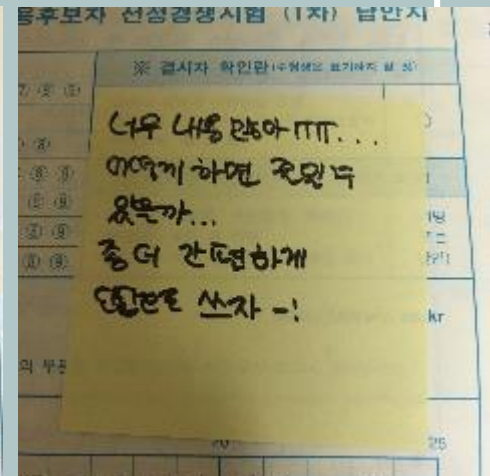 용후보자 선정경쟁시험 (1차) 답안지
※ 결시자 확인란(수험생은 표기하지 말 것)
너무 내용 많아 ㅠㅠ...
어떻게 하면 줄일 수
있을까...
좀 더 간편하게
쓰자 -!
kr
의 부분
20
25